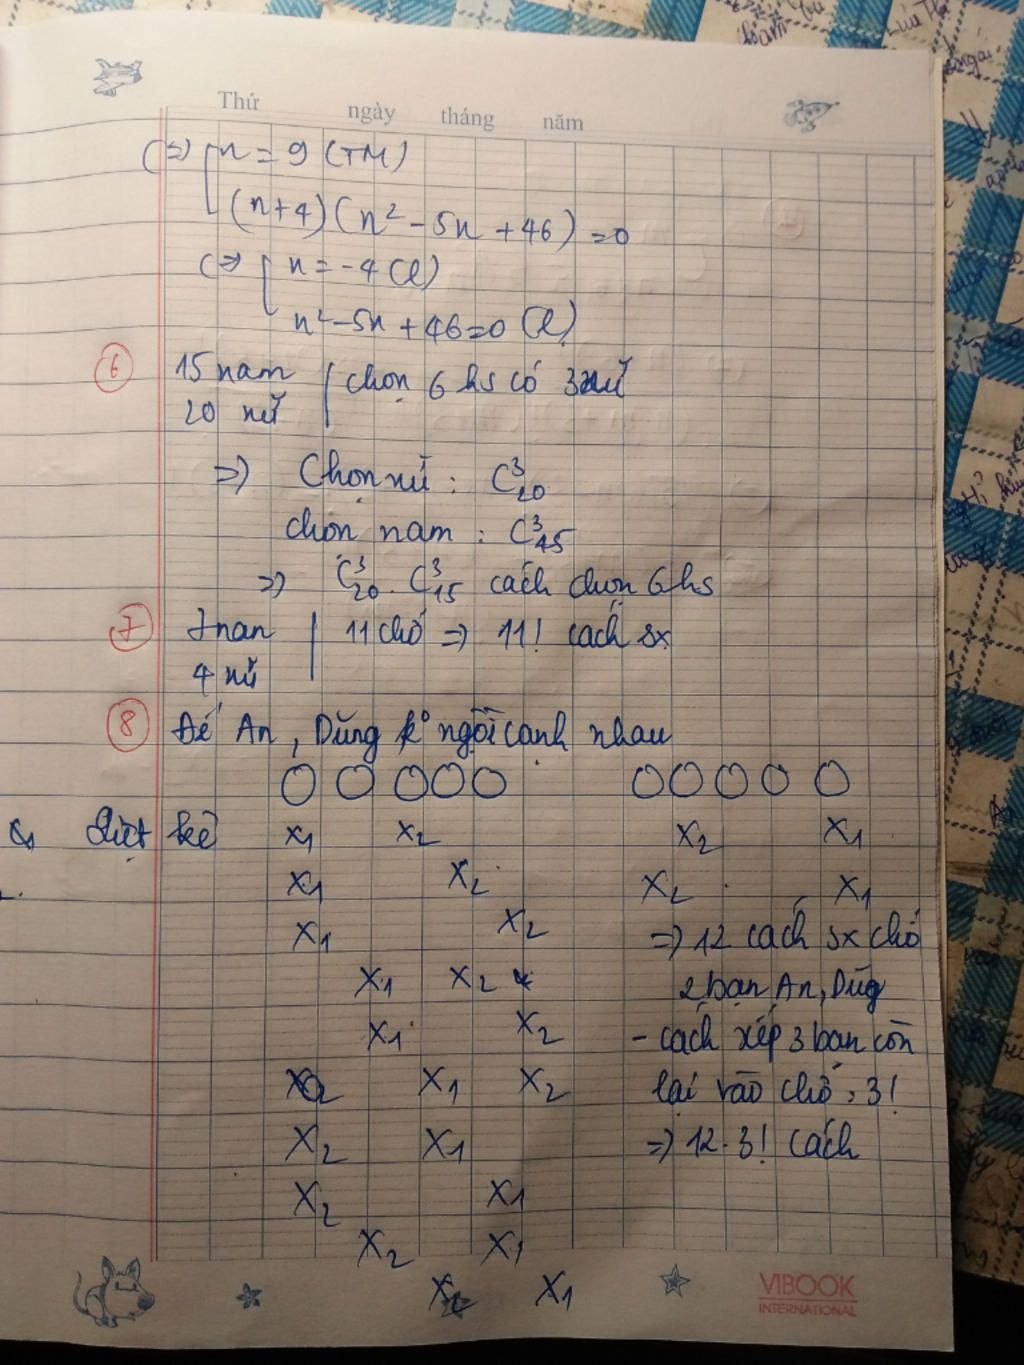 Thứ ngày tháng năm
(=> [ n = 9 (TM)
(n+4)(n² - 5n + 46) = 0
(=> [ n = -4 (l)
n² - 5n + 46 = 0 (l)
6 15 nam | chọn 6 hs có 3 nữ
20 nữ
=> Chọn nữ : C³₂₀
chọn nam : C³₁₅
=> C³₂₀ . C³₁₅ cách chọn 6 hs
7 7 nan | 11 chỗ => 11! cách sx
4 nữ
8 Để An, Dũng k° ngồi cạnh nhau
O O O O O O O O O O
liệt kê X₁ X₂ X₂ X₁
X₁ X₂ X₂ X₁
X₁ X₂ => 12 cách sx chỗ
X₁ X₂ 2 bạn An, Dũg
X₁ X₂ - cách xếp 3 bạn còn
X₁ X₂ lại vào chỗ : 3!
X₂ X₁ => 12 . 3! cách
X₂ X₁
X₂ X₁
X₂ X₁
VIBOOK
INTERNATIONAL